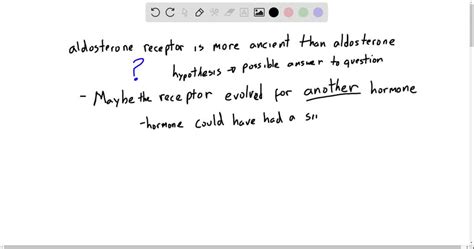 aldosterone receptor is more ancient than aldosterone
? hypothesis → possible answer to question
- Maybe the receptor evolved for another hormone
- hormone could have had a